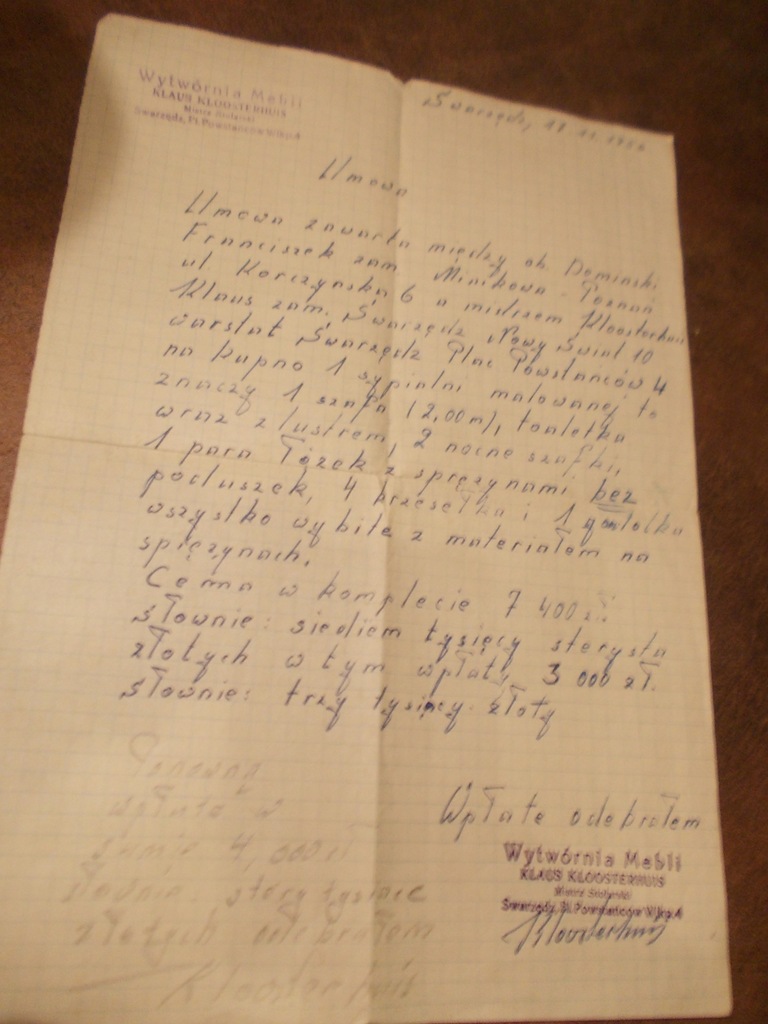 Wytwórnia Mebli
KLAUS KLOOSTERHUIS
Mistrz Stolarski
Swarzędz, Pl. Powstańców Wlkp. 4
Swarzędz,
Umowa
Umowa zawarta między ob. Deminski
Franciszek zam. Minikowo - Poznań
ul. Korczyńska 6 a mistrzem Kloosterhuis
Klaus zam. Swarzędz Nowy Świat 10
warstat Swarzędz Plac Powstańców 4
na kupno 1 sypialni malowanej to
znaczy 1 szafa (2,00m), toaletka
wraz z lustrem, 2 nocne szafki,
1 para łóżek z sprężynami bez
poduszek, 4 krzesełka i 1
wszystko wybite z materiałem na
sprężynach.
Cena w komplecie 7 400 zł.
słownie: siediem tysięcy sterysta
złotych w tym wpłaty 3 000 zł.
słownie: trzy tysięcy złoty
Wpłate odebrałem
Wytwórnia Mebli
KLAUS KLOOSTERHUIS
Mistrz Stolarski
Swarzędz, Pl. Powstańców Wlkp. 4
Kloosterhuis
Ponowną
wpłata w
sumie 4,000 zł
słownie stery tysiące
złotych odebrałem
Kloosterhuis